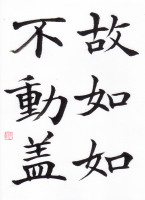 故如如
不動蓋